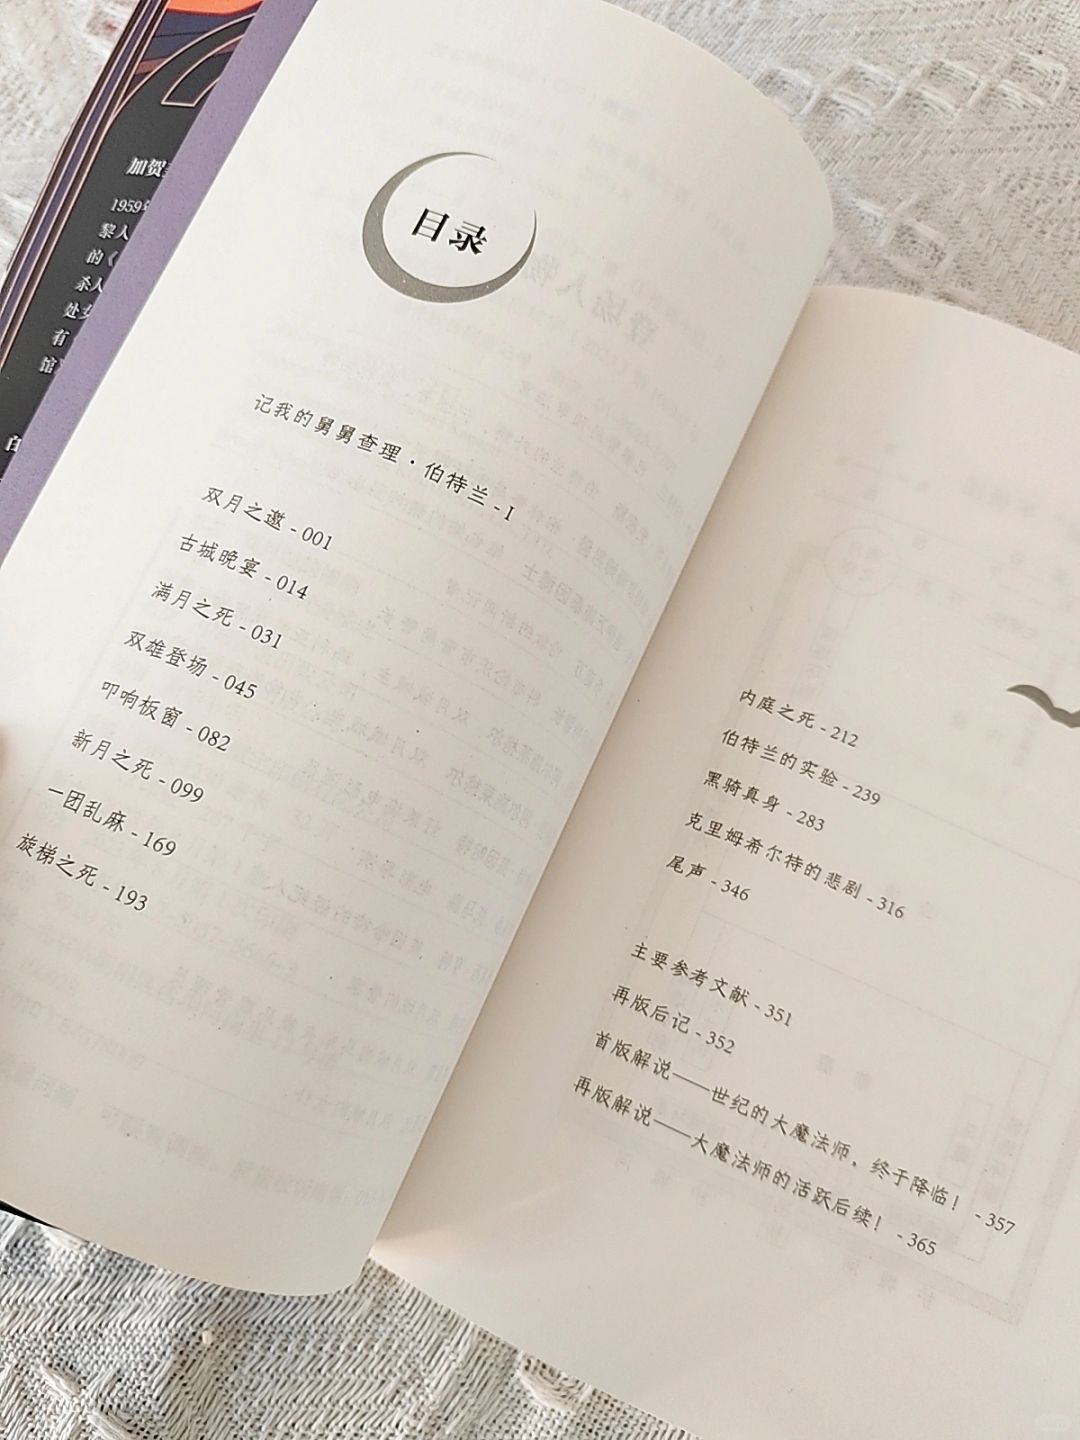 加贺
1959年
黎人
的《
杀人
处女
有
馆
白
目录
记我的舅舅查理·伯特兰 - I
双月之邀 - 001
古城晚宴 - 014
满月之死 - 031
双雄登场 - 045
叩响板窗 - 082
新月之死 - 099
一团乱麻 - 169
旋梯之死 - 193
内庭之死 - 212
伯特兰的实验 - 239
黑骑真身 - 283
克里姆希尔特的悲剧 - 316
尾声 - 346
主要参考文献 - 351
再版后记 - 352
首版解说——世纪的大魔法师，终于降临！ - 357
再版解说——大魔法师的活跃后续！ - 365